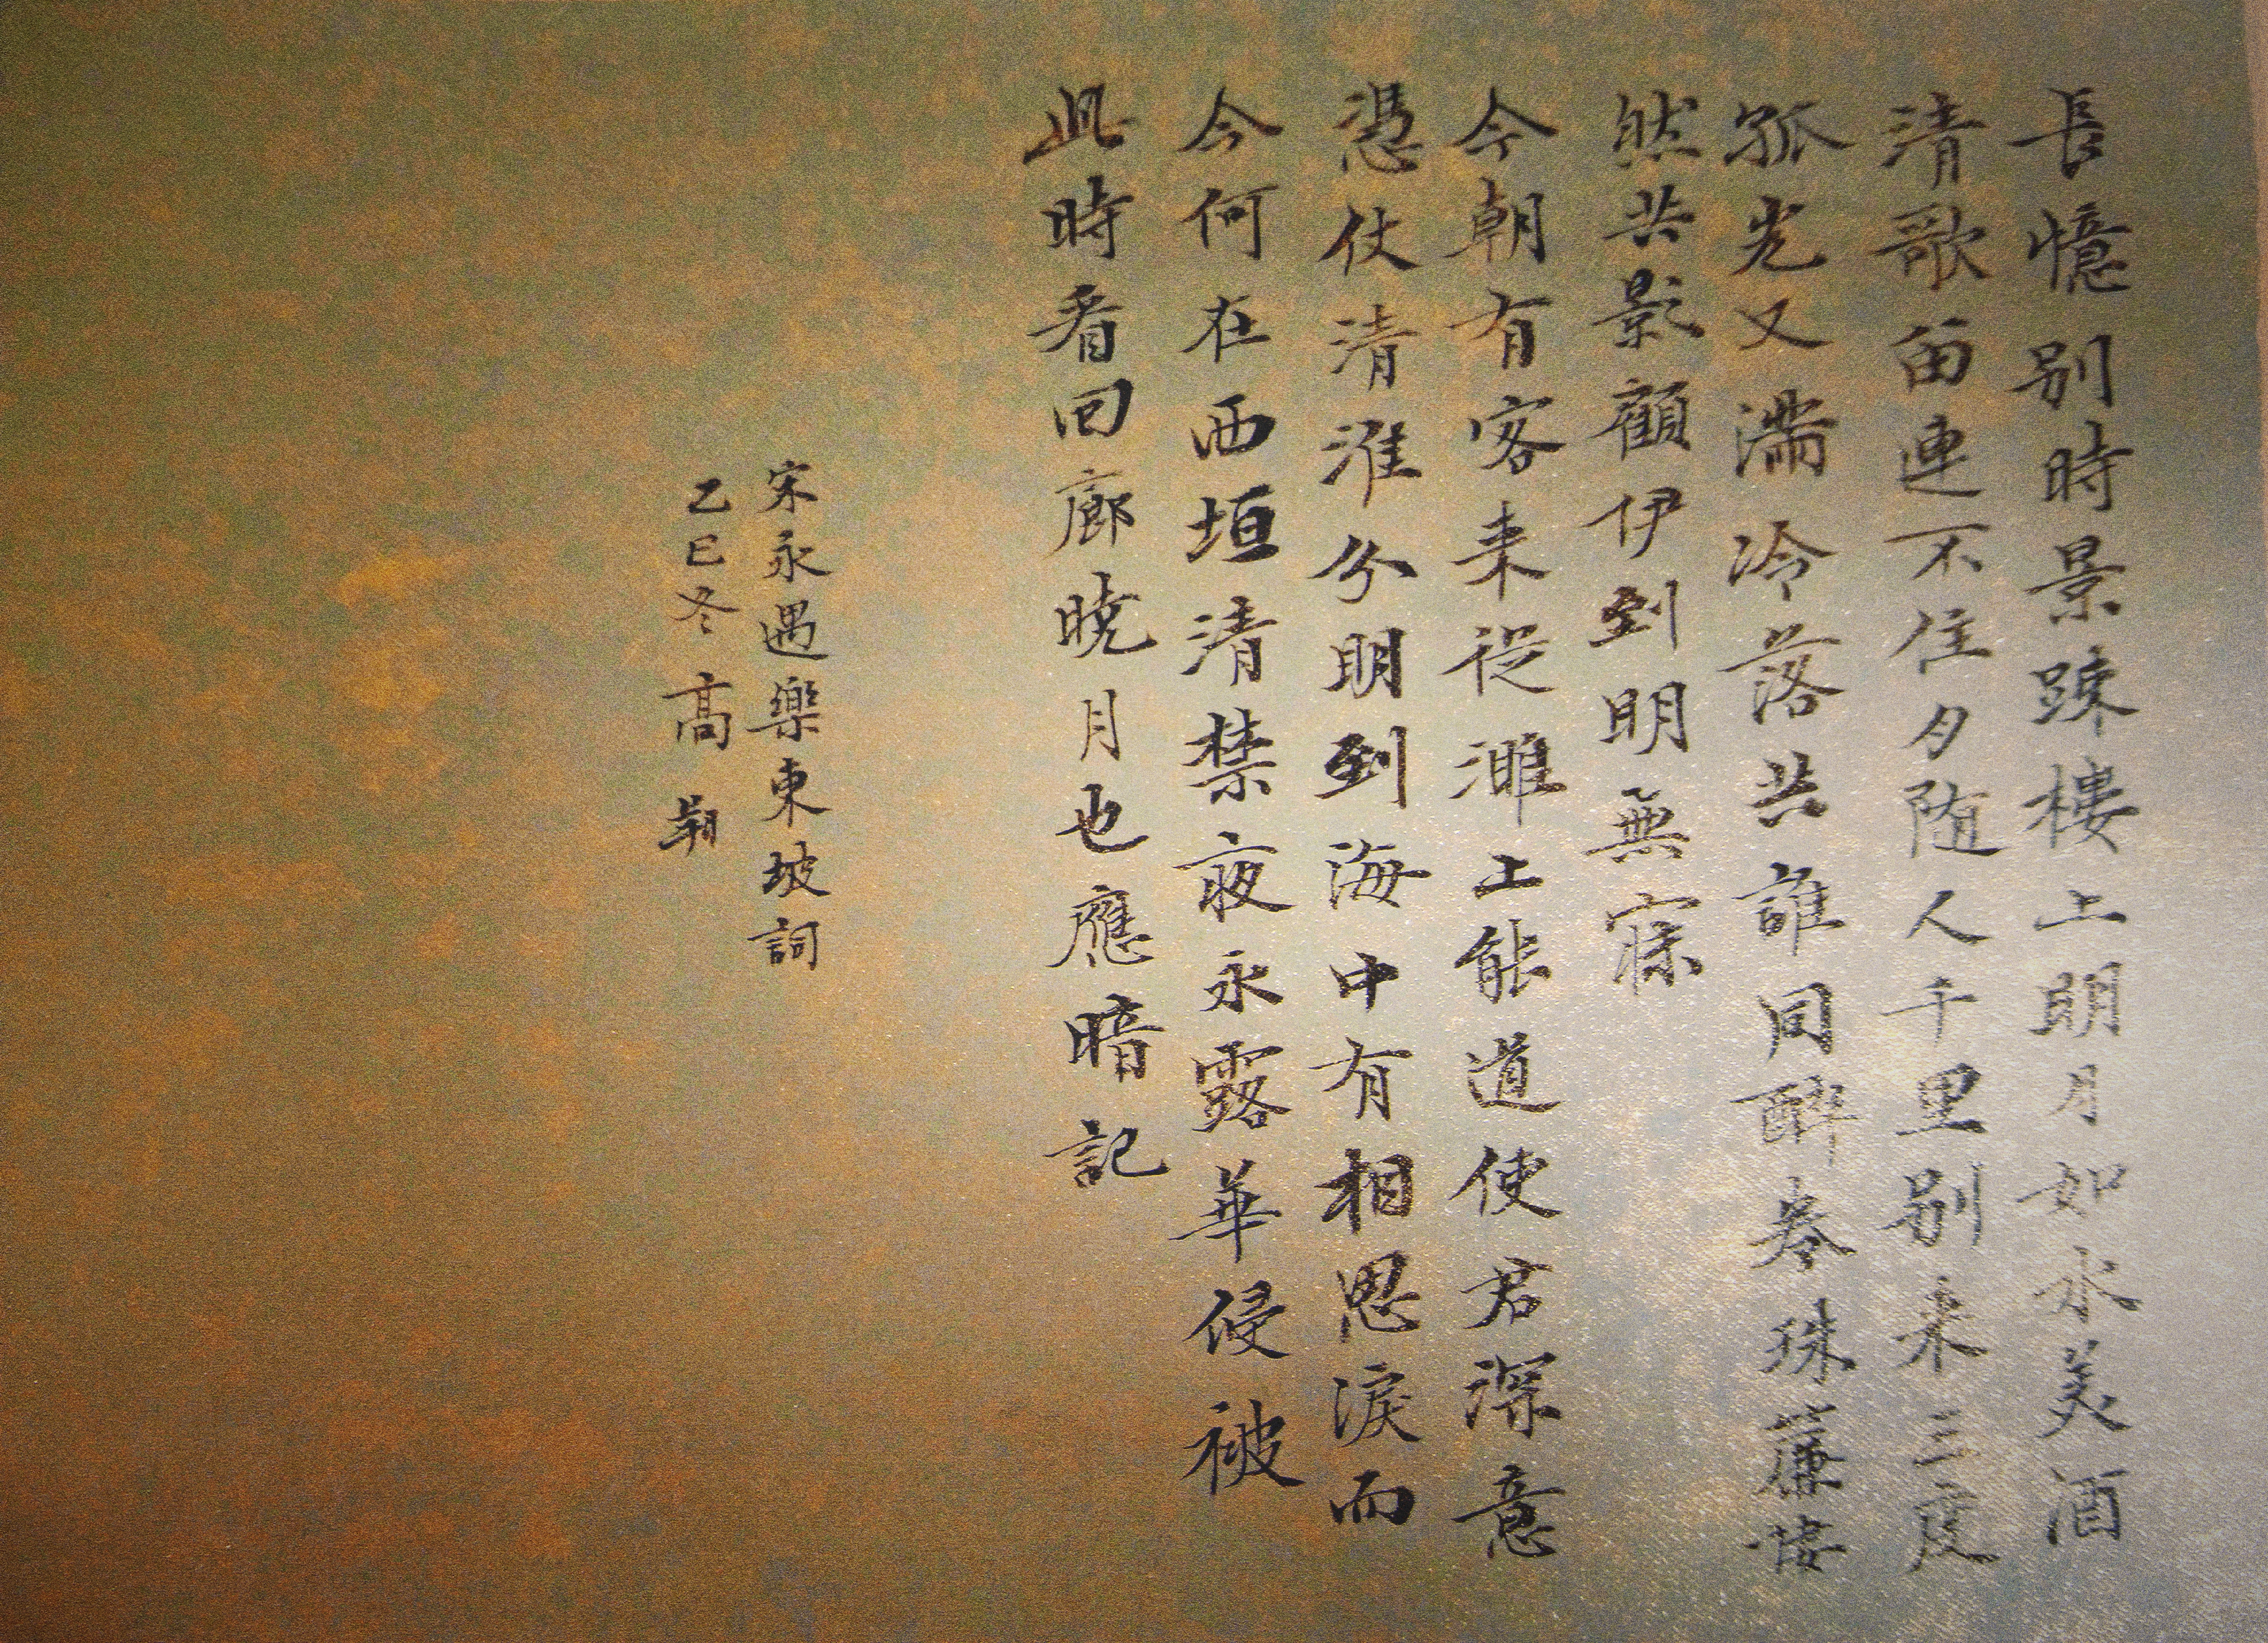 長憶別時景踈樓上明月如水美酒
清歌留連不住夕随人千里別来三度
孤光又滿冷落共誰同醉卷珠簾悽
然共影顧伊到明無寐
今朝有客来從濉上能道使君深意
憑仗清淮分明到海中有相思淚而
今何在西垣清禁夜永露華侵被
此時看回廊曉月也應暗記
宋永遇樂東坡詞
乙巳冬高朔